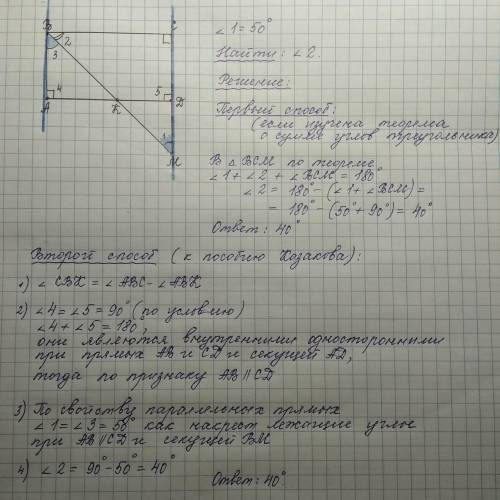 B
C
2
3
4
5
A
K
D
1
M
∠1=50°
Найти: ∠2.
Решение:
Первый способ:
(если изучена теорема
о сумме углов треугольника)
В △BCM по теореме
∠1+∠2+∠BCM=180°
∠2 = 180°-(∠1+∠BCM)=
= 180°-(50°+90°)=40°
Ответ: 40°
Второй способ (к пособию Казакова):
1) ∠CBK = ∠ABC-∠ABK
2) ∠4=∠5=90° (по условию)
∠4+∠5=180°,
они являются внутренними односторонними
при прямых AB и CD и секущей AD,
тогда по признаку AB||CD
3) По свойству параллельных прямых
∠1=∠3=50° как накрест лежащие углы
при AB||CD и секущей BM
4) ∠2=90°-50°=40°
Ответ: 40°.